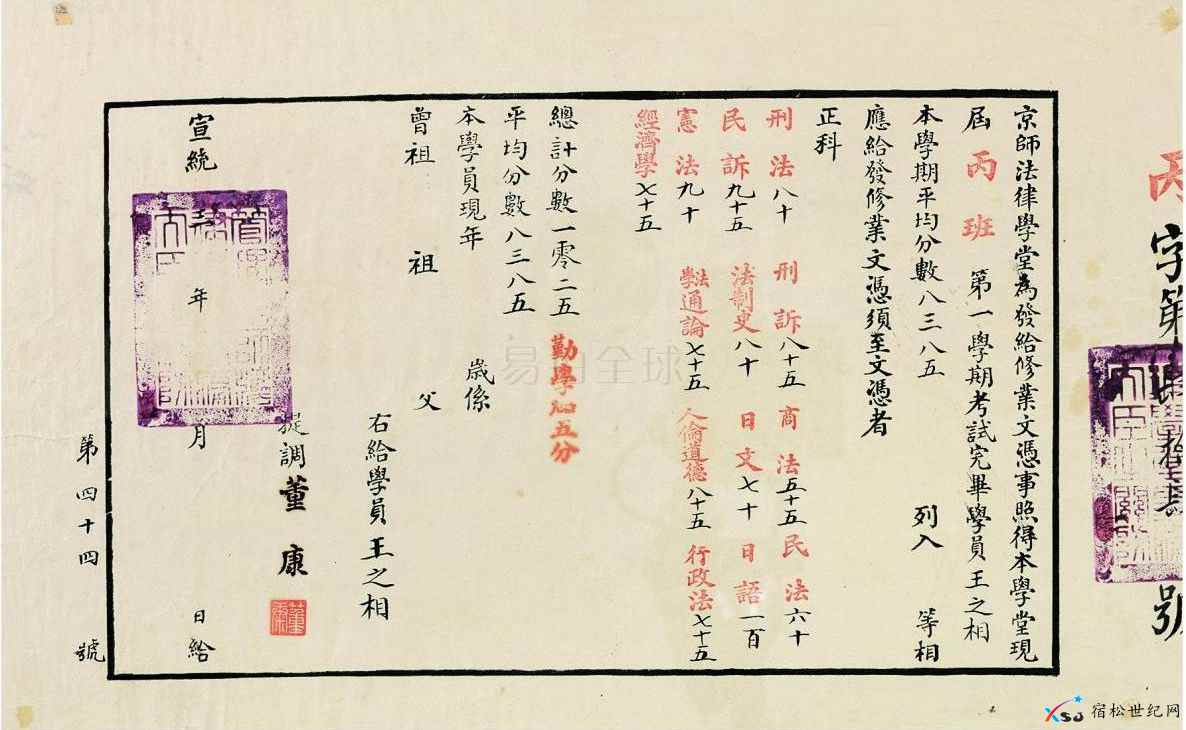 丙字第 號
京師法律學堂為發給修業文憑事照得本學堂現
屆丙班第一學期考試完畢學員王之相
本學期平均分數八三八五 列入 等相
應給發修業文憑須至文憑者
正科
刑法八十 刑訴八十五 商法五十五 民法六十
民訴九十五 法制史八十 日文七十 日語一百
憲法九十 法學通論七十五 人倫道德八十五 行政法七十五
經濟學七十五
總計分數一零二五 勤學加五分
平均分數八三八五
本學員現年 歲係
曾祖 祖 父
右給學員王之相
提調董康
董康
宣統 年 月 日給
第四十四號
易 全球
XSJ 宿松世纪网